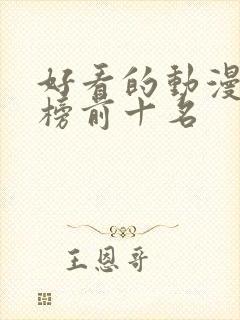 好看的動漫
榜前十名
王恩哥